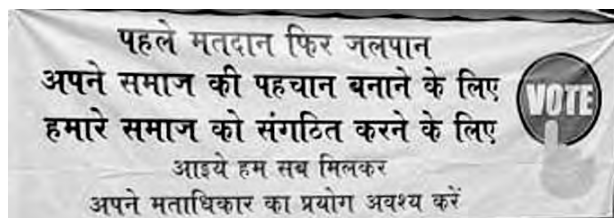 पहले मतदान फिर जलपान
अपने समाज की पहचान बनाने के लिए
हमारे समाज को संगठित करने के लिए
VOTE
आइये हम सब मिलकर
अपने मताधिकार का प्रयोग अवश्य करें